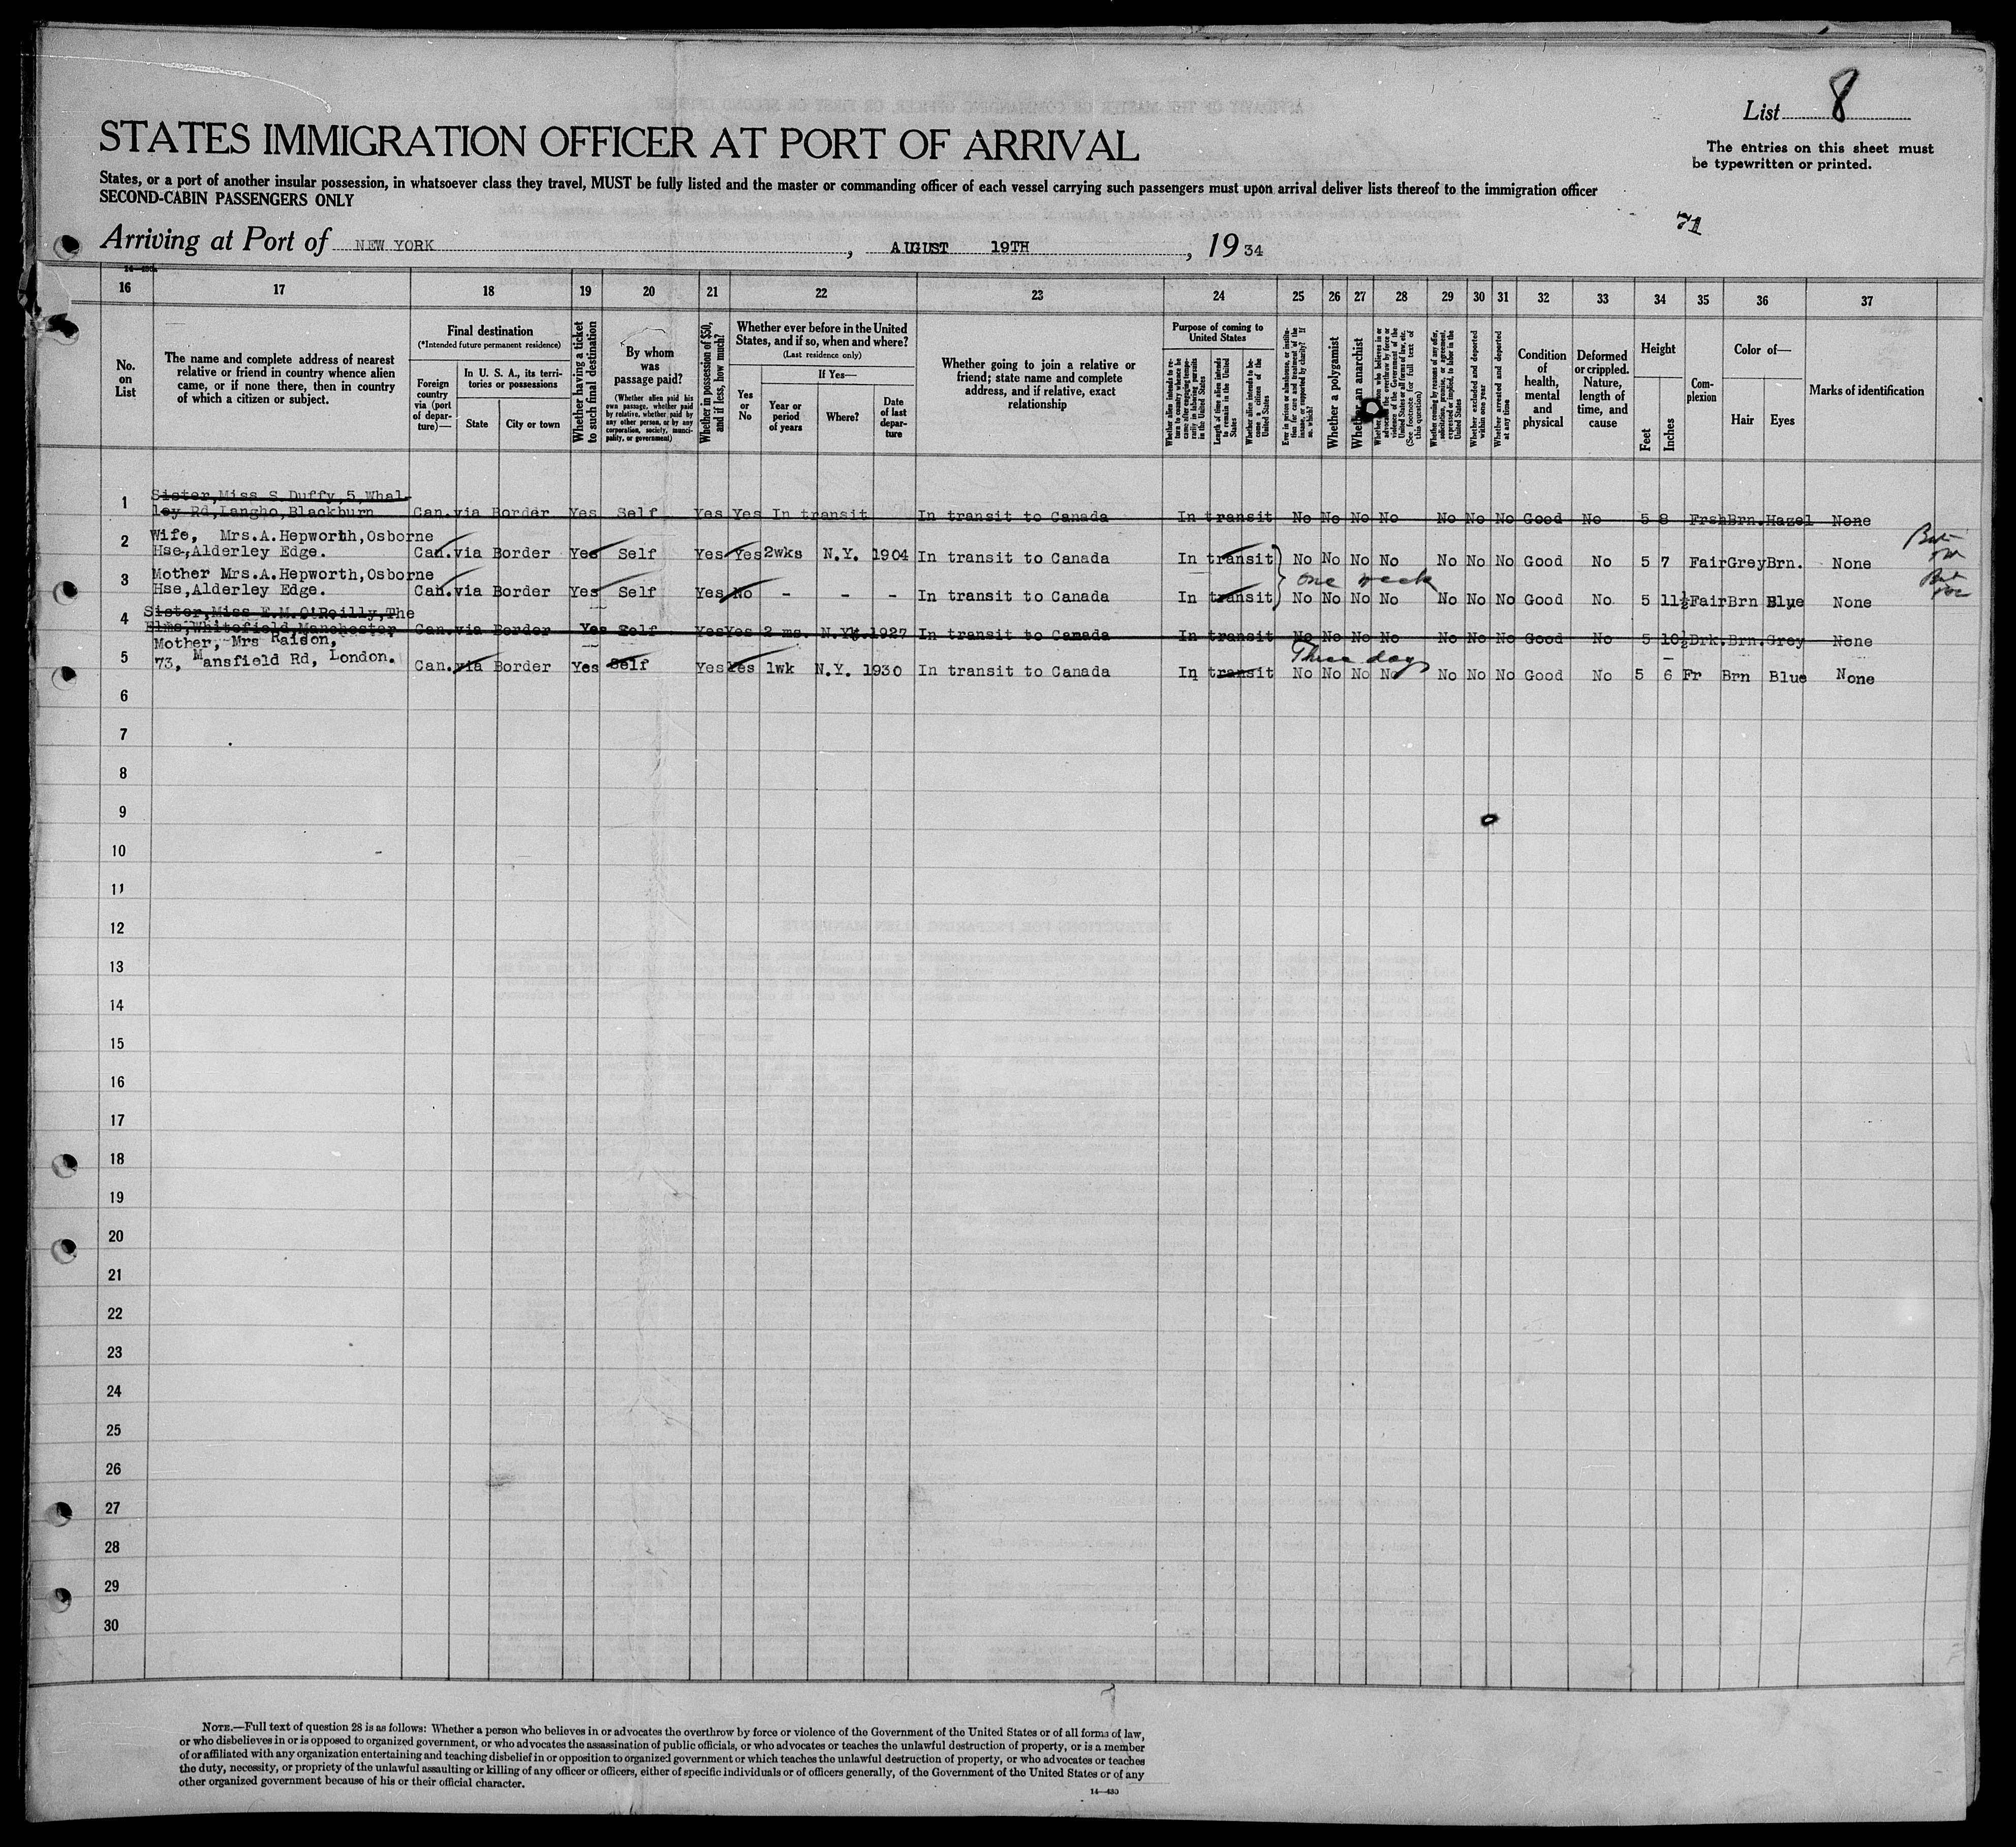 List 8
The entries on this sheet must
be typewritten or printed.
STATES IMMIGRATION OFFICER AT PORT OF ARRIVAL
States, or a port of another insular possession, in whatsoever class they travel, MUST be fully listed and the master or commanding officer of each vessel carrying such passengers must upon arrival deliver lists thereof to the immigration officer
SECOND-CABIN PASSENGERS ONLY
71
Arriving at Port of NEW YORK, AUGUST 19TH, 19 34
16 17 18 19 20 21 22 23 24 25 26 27 28 29 30 31 32 33 34 35 36 37
No.
on
List
The name and complete address of nearest
relative or friend in country whence alien
came, or if none there, then in country
of which a citizen or subject.
Final destination
(*Intended future permanent residence)
Foreign
country
via (port
of depar-
ture)—
In U. S. A., its terri-
tories or possessions
State
City or town
Whether having a ticket
to such final destination
By whom
was
passage paid?
(Whether alien paid his
own passage, whether paid
by relative, whether paid by
any other person, or by any
corporation, society, munci-
pality, or government)
Whether in possession of $50,
and if less, how much?
Whether ever before in the United
States, and if so, when and where?
(Last residence only)
Yes
or
No
If Yes—
Year or
period
of years
Where?
Date
of last
depar-
ture
Whether going to join a relative or
friend; state name and complete
address, and if relative, exact
relationship
Purpose of coming to
United States
Whether alien intends to re-
turn to country whence he
came after engaging tempo-
rarily in laboring pursuits
in the United States
Length of time alien intends
to remain in the United
States
Whether alien intends to be-
come a citizen of the
United States
Ever in prison or almshouse, or institu-
tion for care and treatment of the
insane, or supported by charity? If
so, which?
Whether a polygamist
Whether an anarchist
(See footnote for full text of
this question)
Whether coming by reasons of any offer,
solicitation, promise, or agreement,
expressed or implied, to labor in the
United States
Whether excluded and deported
within one year
Whether arrested and deported
at any time
Condition
of
health,
mental
and
physical
Deformed
or crippled.
Nature,
length of
time, and
cause
Height
Feet
Inches
Com-
plexion
Color of—
Hair
Eyes
Marks of identification
Sister,Miss S Duffy,5,Whal-
1 ley Rd,Langho,Blackburn Can.via Border Yes Self Yes Yes In transit In transit to Canada In transit No No No No No No No Good No 5 8 Frsh Brn. Hazel None
Wife, Mrs.A.Hepworth,Osborne
2 Hse,Alderley Edge. Can.via Border Yes Self Yes Yes 2wks N.Y. 1904 In transit to Canada In transit No No No No No No No Good No 5 7 Fair Grey Brn. None
one week
Mother Mrs.A.Hepworth,Osborne
3 Hse,Alderley Edge. Can.via Border Yes Self Yes No - - - In transit to Canada In transit No No No No No No No Good No 5 11½ Fair Brn Blue None
Sister,Miss E.M.O'Reilly,The
4 Elms,Whitefield,Manchester Can.via Border Yes Self Yes Yes 2 ms. N.Y. 1927 In transit to Canada In transit No No No No No No No Good No 5 10½ Drk. Brn. Grey None
Three days
Mother, Mrs Raison,
5 73, Mansfield Rd, London. Can.via Border Yes Self Yes Yes 1wk N.Y. 1930 In transit to Canada In transit No No No No No No No Good No 5 6 Fr Brn Blue None
6
7
8
9
10
11
12
13
14
15
16
17
18
19
20
21
22
23
24
25
26
27
28
29
30
NOTE.—Full text of question 28 is as follows: Whether a person who believes in or advocates the overthrow by force or violence of the Government of the United States or of all forms of law,
or who disbelieves in or is opposed to organized government, or who advocates the assassination of public officials, or who advocates or teaches the unlawful destruction of property, or is a member
of or affiliated with any organization entertaining and teaching disbelief in or opposition to organized government or which teaches the unlawful destruction of property, or who advocates or teaches
the duty, necessity, or propriety of the unlawful assaulting or killing of any officer or officers, either of specific individuals or of officers generally, of the Government of the United States or of any
other organized government because of his or their official character.
14—430